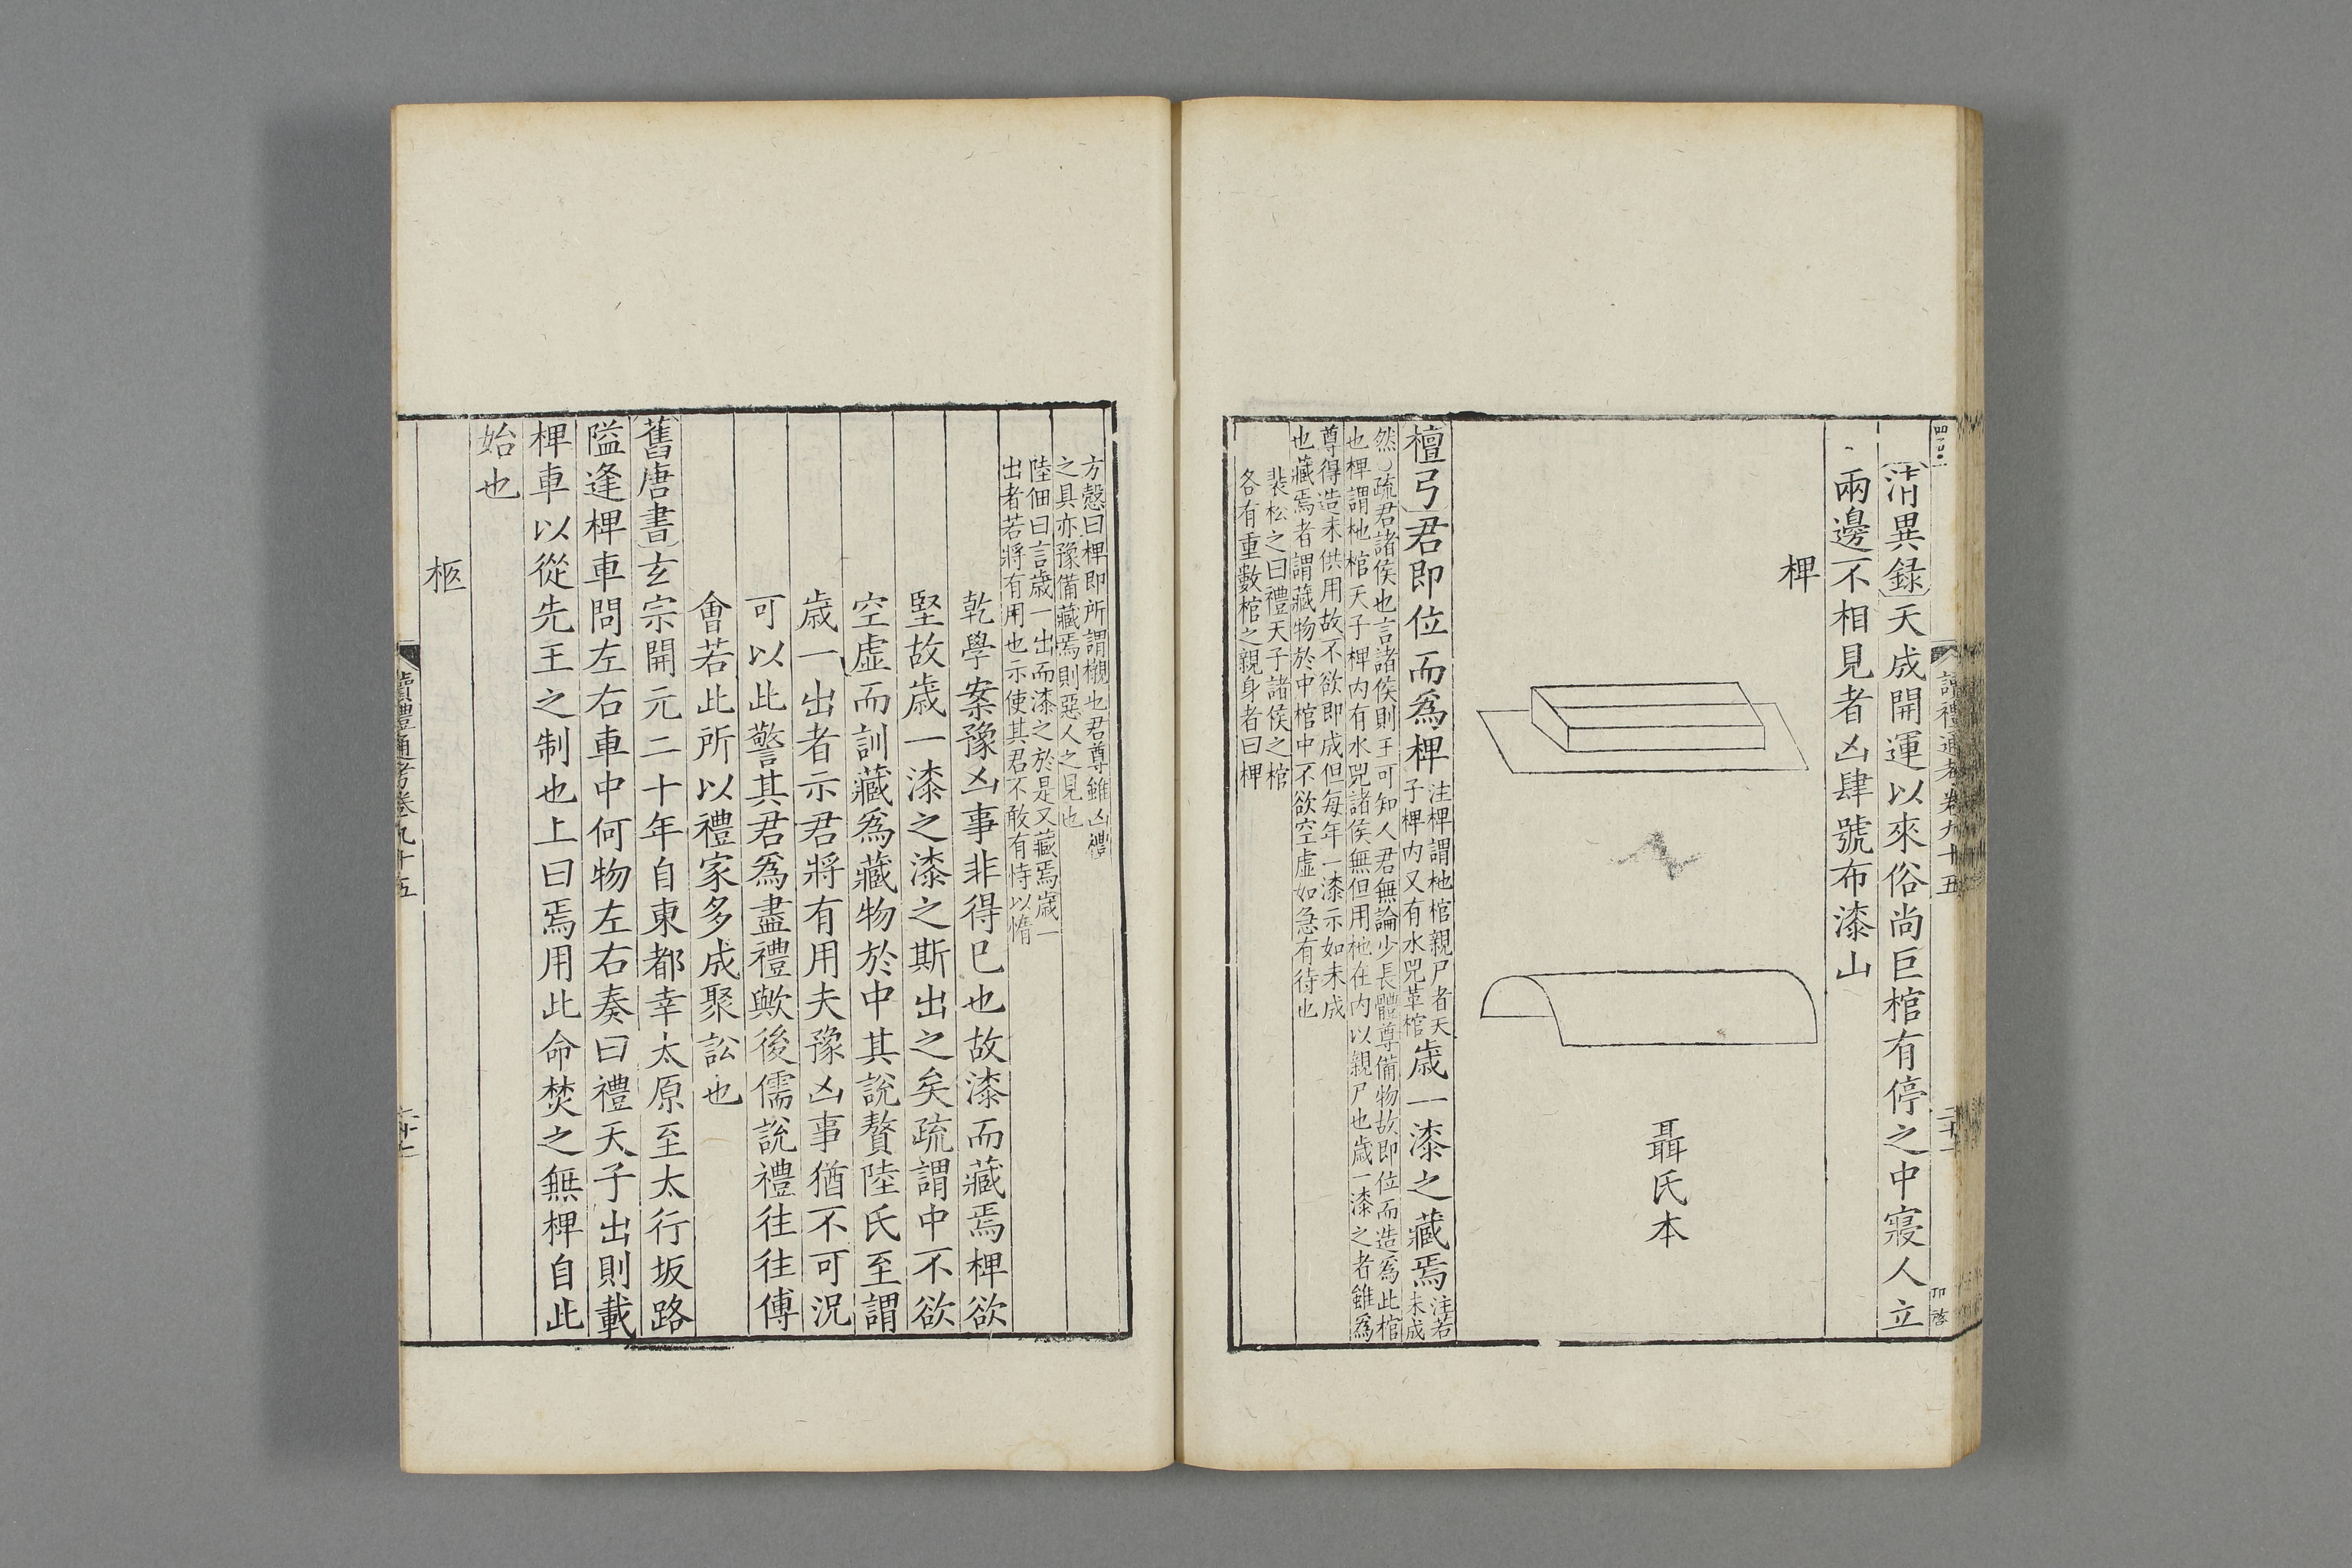 讀禮通考卷九十五
清異録天成開運以來俗尚巨棺有停之中寢人立
兩邊不相見者凶肆號布漆山
椑
聶氏本
檀弓君即位而爲椑注椑謂杝棺親尸者天
子椑内又有水兕革棺歲一漆之藏焉注若
未成
然疏君諸侯也言諸侯則王可知人君無論少長體尊備物故即位而造爲此棺
也椑謂杝棺天子椑内有水兕諸侯無但用杝在内以親尸也歲一漆之者雖爲
尊得造未供用故不欲即成但每年一漆示如未成
也藏焉者謂藏物於中棺中不欲空虛如急有待也
裴松之曰禮天子諸侯之棺
各有重數棺之親身者曰椑
方慤曰椑即所謂櫬也君尊雖凶禮
之具亦豫備藏焉則惡人之見也
陸佃曰言歲一出而漆之於是又藏焉歲一
出者若將有用也示使其君不敢有恃以惰
乾學案豫凶事非得已也故漆而藏焉椑欲
堅故歲一漆之漆之斯出之矣疏謂中不欲
空虛而訓藏爲藏物於中其說贅陸氏至謂
歲一出者示君將有用夫豫凶事猶不可況
可以此警其君爲盡禮歟後儒說禮往往傅
會若此所以禮家多成聚訟也
舊唐書玄宗開元二十年自東都幸太原至太行坂路
隘逢椑車問左右車中何物左右奏曰禮天子出則載
椑車以從先王之制也上曰焉用此命焚之無椑自此
始也
柩
讀禮通考卷九十五